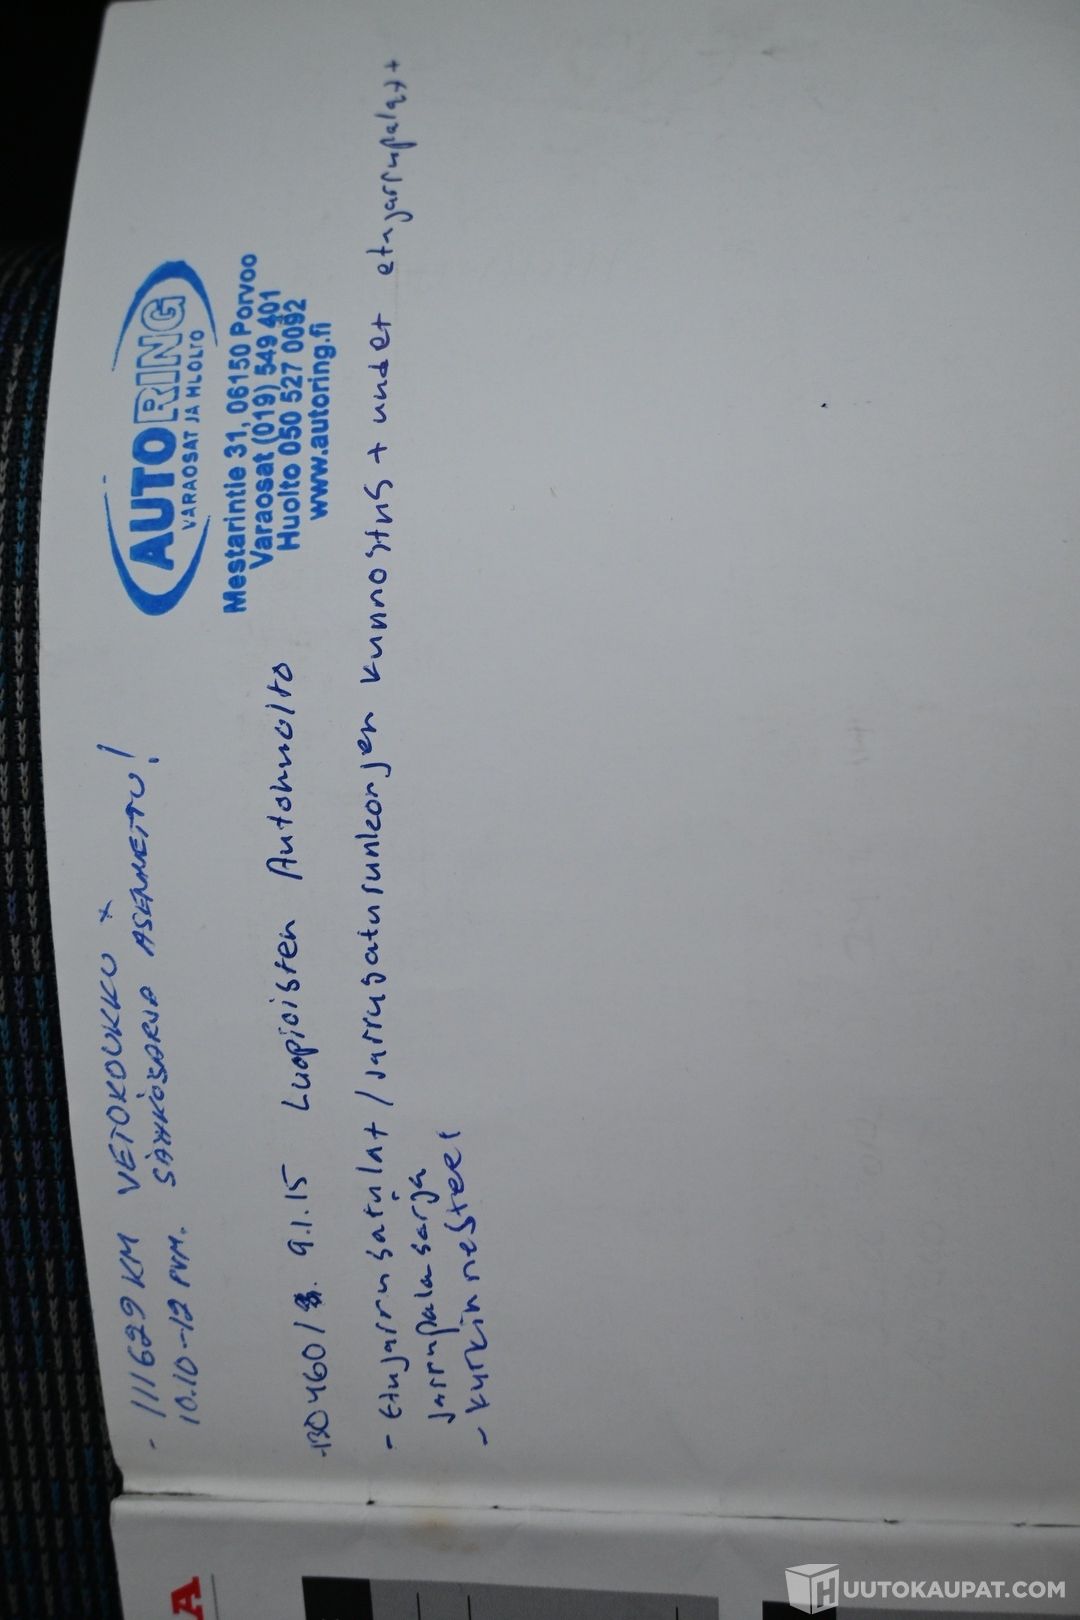 - 111629 KM VETOKOUKKU +
10.10-12 PVM. SÄHKÖSARJA ASENNETTU!
AUTORING
VARAOSAT JA HUOLTO
Mestarintie 31, 06150 Porvoo
Varaosat (019) 549 401
Huolto 050 527 0092
www.autoring.fi
130460 / 9.1.15 Luopioisten Autohuolto
- Etujarrusatulat / jarrusaturunkojen kunnostus + uudet etujarrupalat +
jarrupalasarja
- kytkinnesteet
A
HUUTOKAUPAT.COM